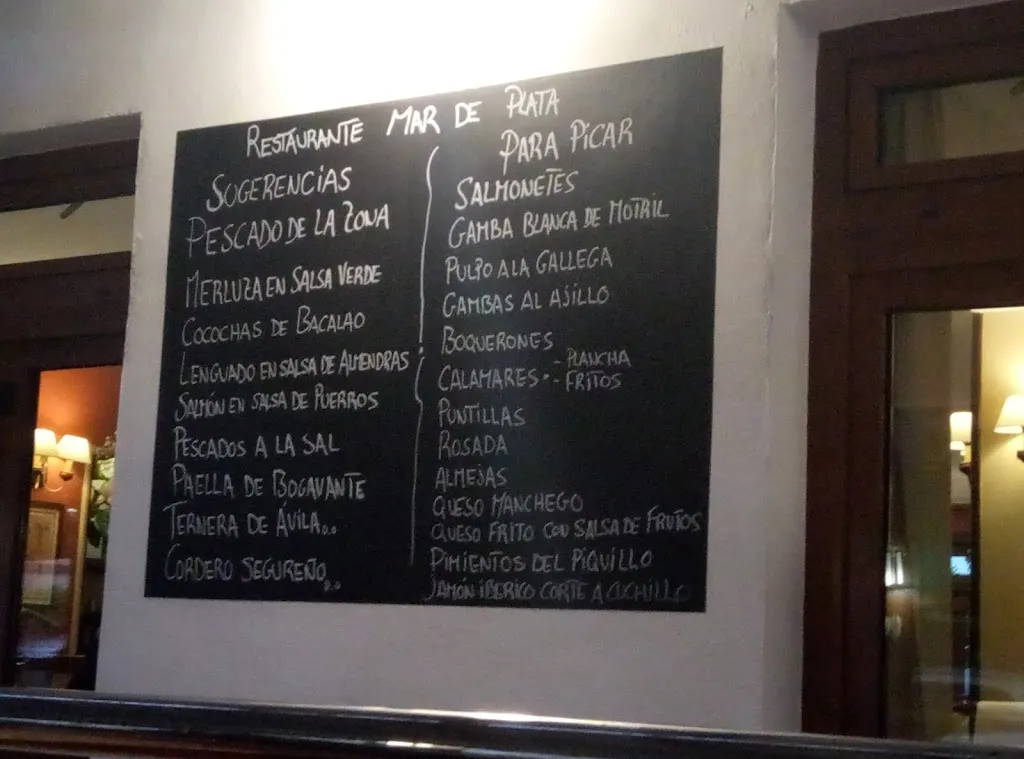 RESTAURANTE MAR DE PLATA
SUGERENCIAS
PESCADO DE LA ZONA
MERLUZA EN SALSA VERDE
COCOCHAS DE BACALAO
LENGUADO EN SALSA DE ALMENDRAS
SALMÓN EN SALSA DE PUERROS
PESCADOS A LA SAL
PAELLA DE BOGAVANTE
TERNERA DE ÁVILA..
CORDERO SEGUREÑO..
PARA PICAR
SALMONETES
GAMBA BLANCA DE MOTRIL
PULPO A LA GALLEGA
GAMBAS AL AJILLO
BOQUERONES
CALAMARES - PLANCHA
- FRITOS
PUNTILLAS
ROSADA
ALMEJAS
QUESO MANCHEGO
QUESO FRITO CON SALSA DE FRUTOS
PIMIENTOS DEL PIQUILLO
JAMÓN IBERICO CORTE A CUCHILLO